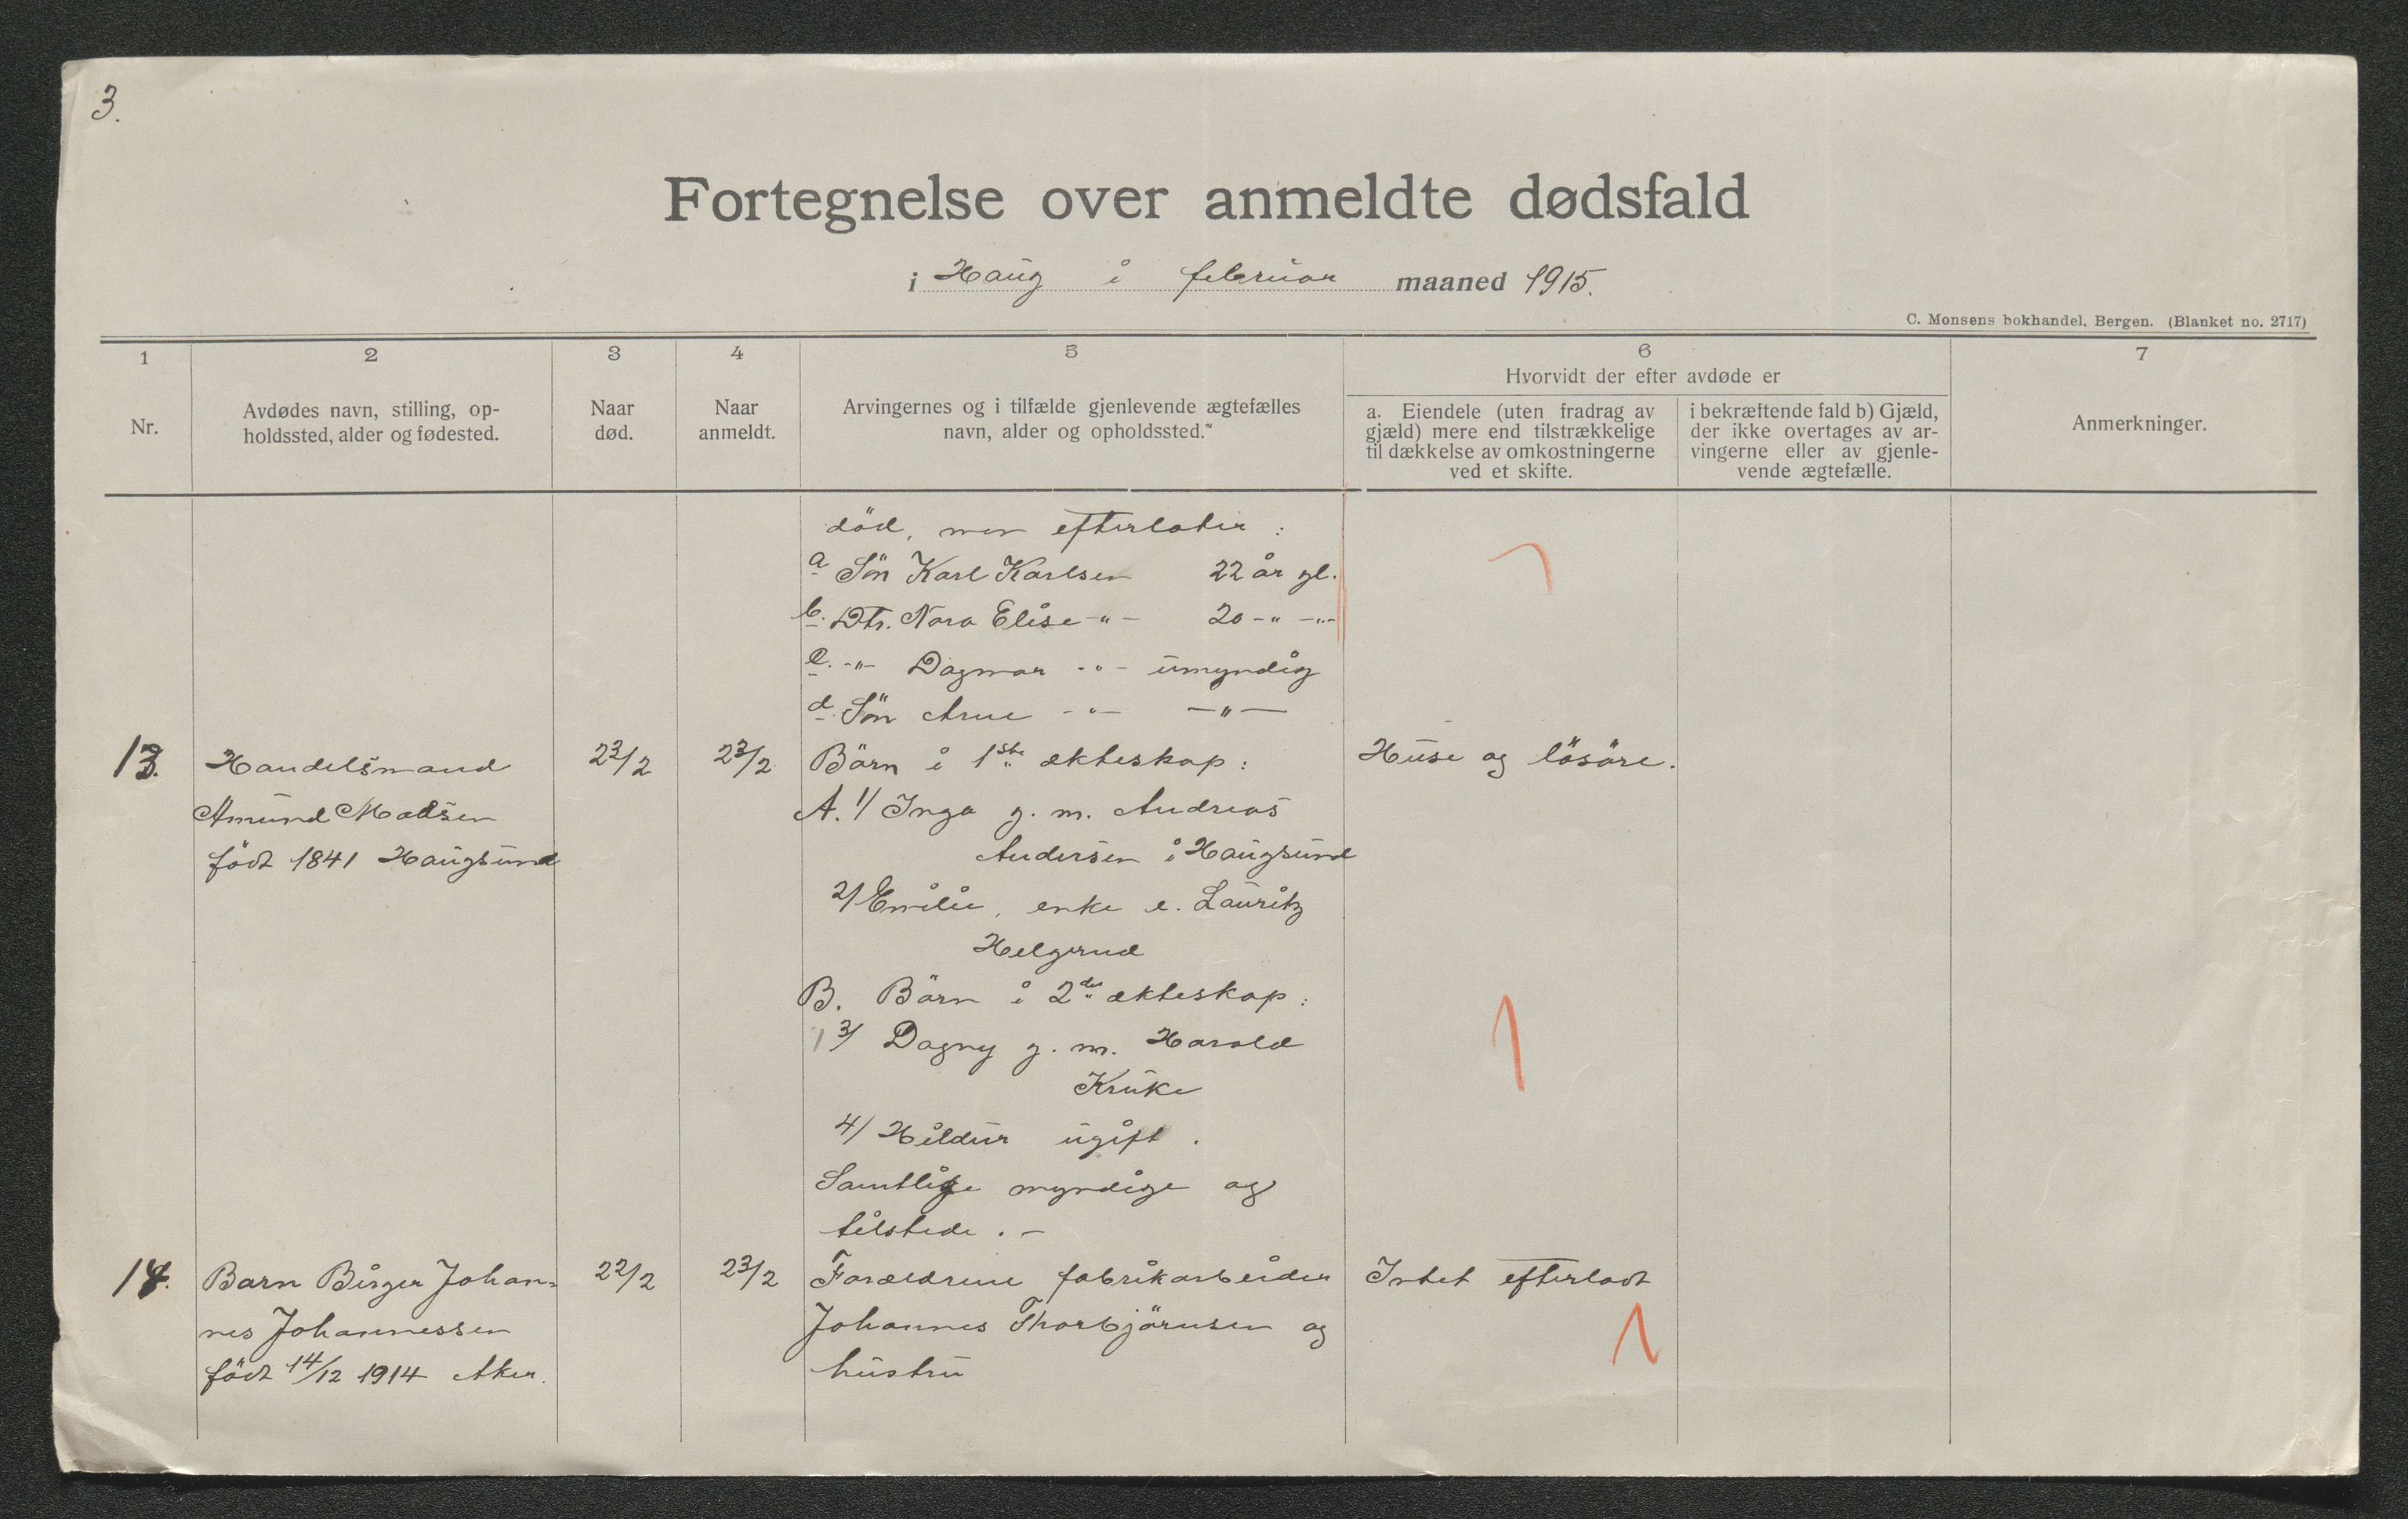 3.
Fortegnelse over anmeldte dødsfald
i Haug i februar maaned 1915.
C. Monsens bokhandel, Bergen. (Blanket no. 2717)
1
2
3
4
5
6
7
Nr.
Avdødes navn, stilling, op-
holdssted, alder og fødested.
Naar
død.
Naar
anmeldt.
Arvingernes og i tilfælde gjenlevende ægtefælles
navn, alder og opholdssted.
Hvorvidt der efter avdøde er
a. Eiendele (uten fradrag av
gjæld) mere end tilstrækkelige
til dækkelse av omkostningerne
ved et skifte.
i bekræftende fald b) Gjæld,
der ikke overtages av ar-
vingerne eller av gjenle-
vende ægtefælle.
Anmerkninger.
död, men efterlater :
a Sön Karl Karlsen 22 år gl.
b. Dtr. Nora Elise -"- 20 -"- -"-
c. -"- Dagmar -"- umyndig
d. Sön Arne -"- -"-
13. Handelsmand 23/2 23/2 Börn i 1ste ekteskap : Huse og lösöre.
Amund Madsen A. 1/ Inga g. m. Andreas
födt 1841 Haugsund Andersen i Haugsund
2/ Emilie, enke e. Lauritz
Helgerud
B. Börn i 2det ekteskap :
3/ Dagny g. m. Harald
Kruke
4/ Hildur ugift.
Samtlige myndige og
tilstede. -
14. Barn Birger Johan= 22/2 23/2 Forældrene fabrikarbeider Intet efterladt
nes Johannessen Johannes Thorbjörnsen og
födt 14/12 1914 Aker. hustru